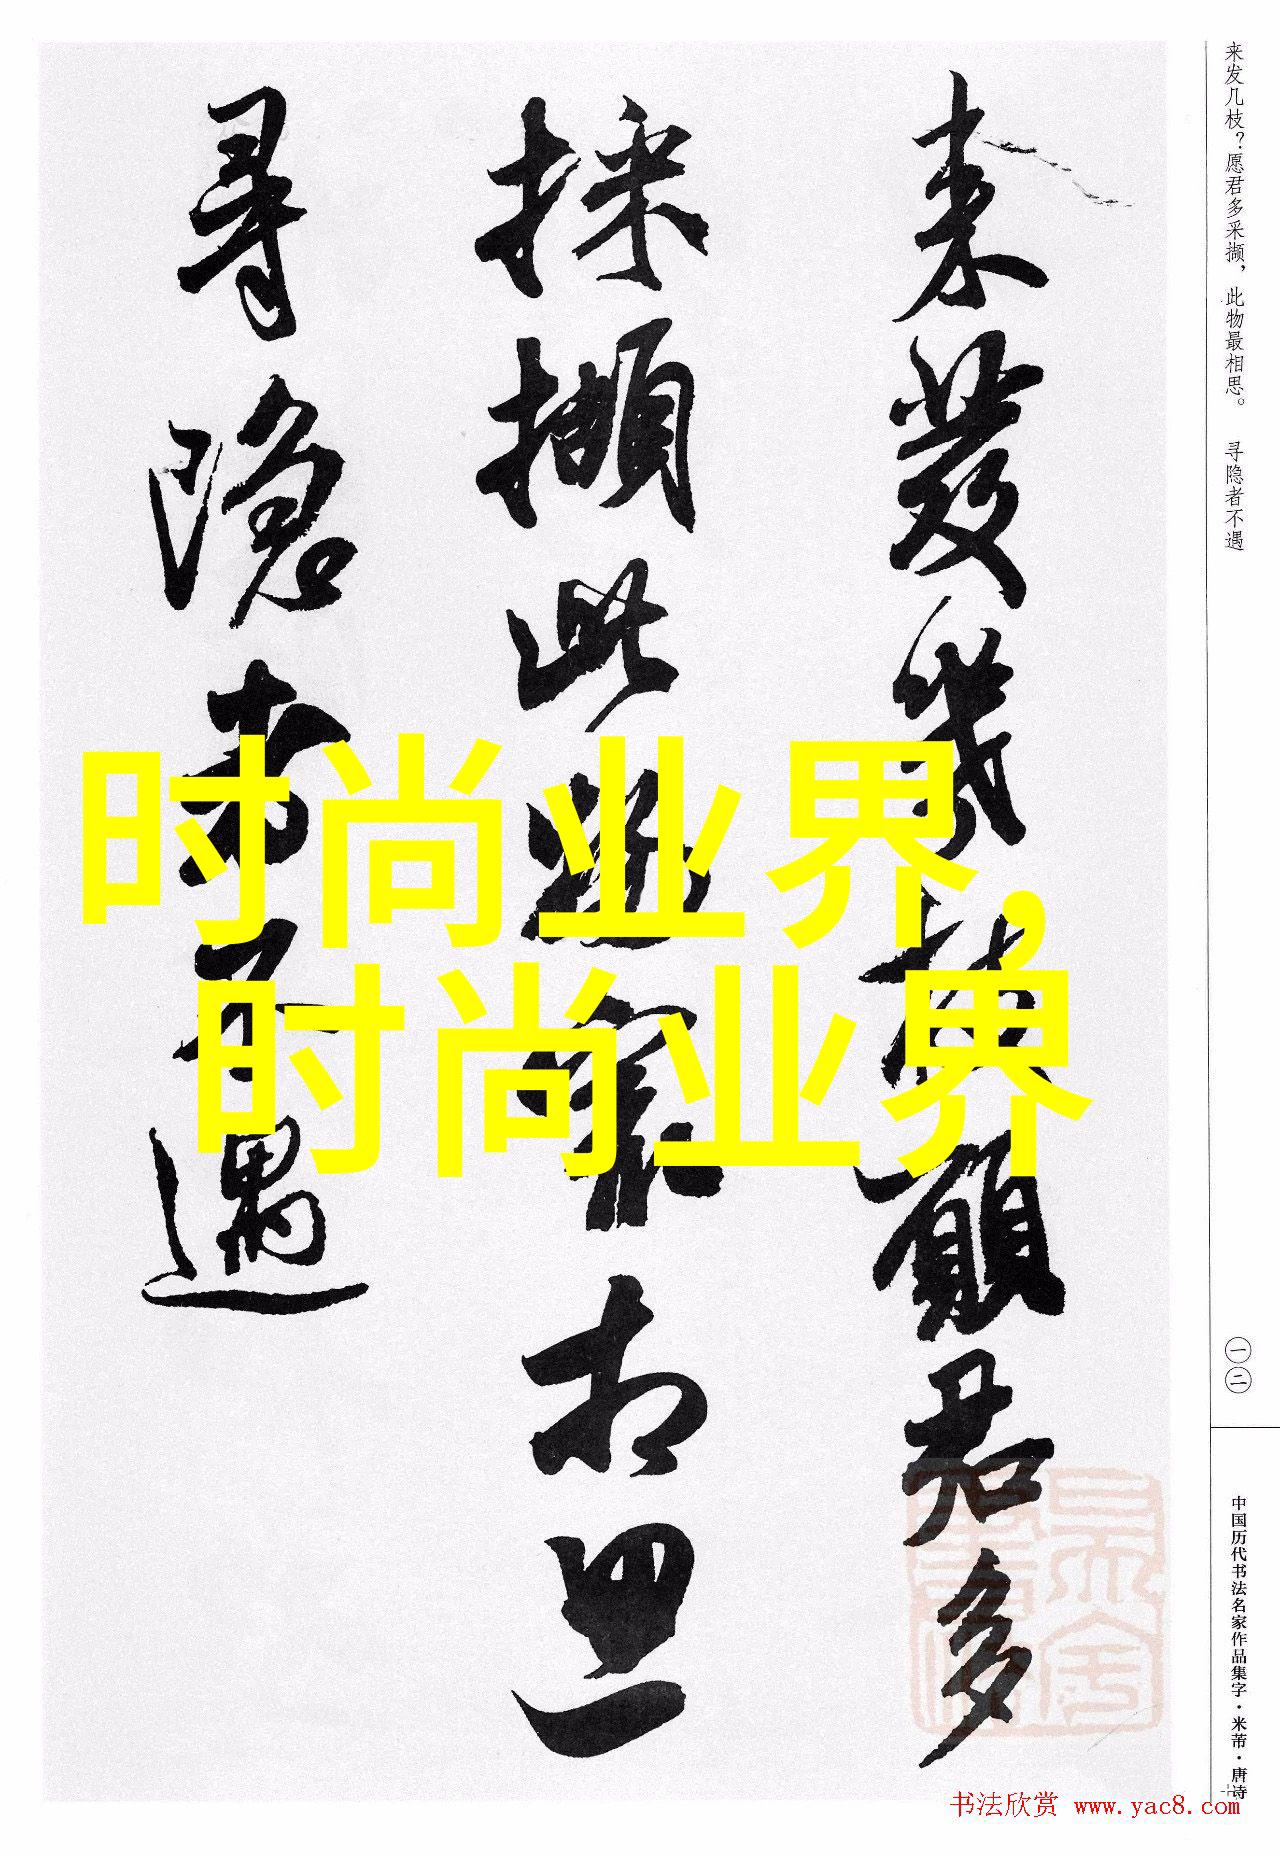 来发几枝？愿君多采撷，此物最相思。 寻隐者不遇
来發幾枝願君多
採擷此物最相思
尋隱者不遇
时尚业界，
时尚业界
一二
中国历代书法名家作品集字·米芾·唐诗
书法欣赏 www.yac8.com